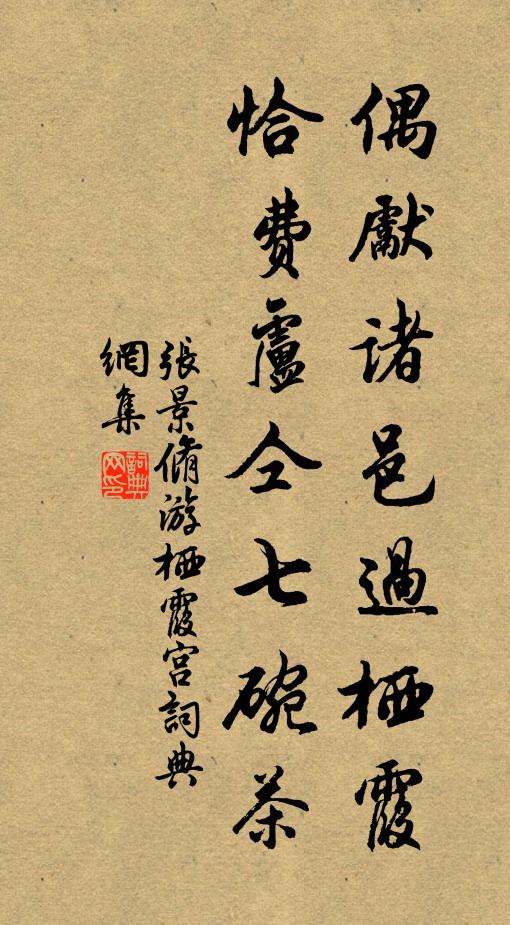 偶獻諸邑過栖霞
恰費盧仝七碗茶
張景脩游栖霞宮詞典
網集
詞典網印